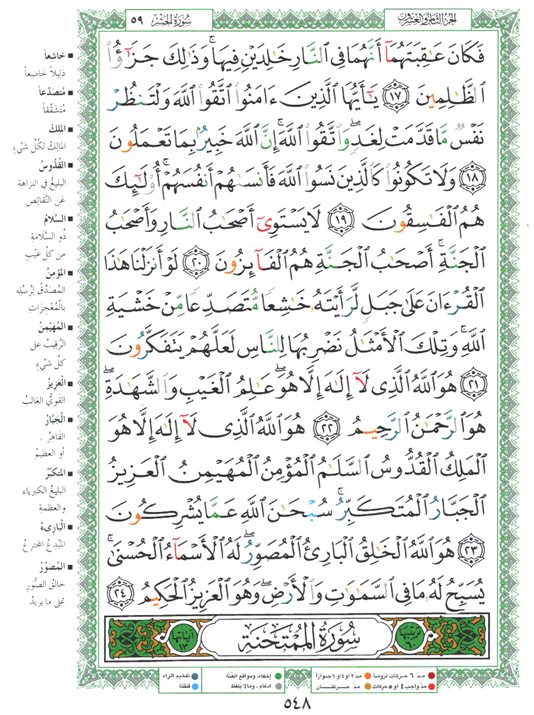 الجزء الثامن والعشرون
سورة الحشر
٥٩
فَكَانَ عَٰقِبَتَهُمَآ أَنَّهُمَا فِى ٱلنَّارِ خَٰلِدَيْنِ فِيهَا ۚ وَذَٰلِكَ جَزَٰٓؤُا۟
ٱلظَّٰلِمِينَ ﴿١٧﴾ يَٰٓأَيُّهَا ٱلَّذِينَ ءَامَنُوا۟ ٱتَّقُوا۟ ٱللَّهَ وَلْتَنظُرْ
نَفْسٌ مَّا قَدَّمَتْ لِغَدٍ ۖ وَٱتَّقُوا۟ ٱللَّهَ ۚ إِنَّ ٱللَّهَ خَبِيرٌۢ بِمَا تَعْمَلُونَ
﴿١٨﴾ وَلَا تَكُونُوا۟ كَٱلَّذِينَ نَسُوا۟ ٱللَّهَ فَأَنسَىٰهُمْ أَنفُسَهُمْ ۚ أُو۟لَٰٓئِكَ
هُمُ ٱلْفَٰسِقُونَ ﴿١٩﴾ لَا يَسْتَوِىٓ أَصْحَٰبُ ٱلنَّارِ وَأَصْحَٰبُ
ٱلْجَنَّةِ ۚ أَصْحَٰبُ ٱلْجَنَّةِ هُمُ ٱلْفَآئِزُونَ ﴿٢٠﴾ لَوْ أَنزَلْنَا هَٰذَا
ٱلْقُرْءَانَ عَلَىٰ جَبَلٍ لَّرَأَيْتَهُۥ خَٰشِعًا مُّتَصَدِّعًا مِّنْ خَشْيَةِ
ٱللَّهِ ۚ وَتِلْكَ ٱلْأَمْثَٰلُ نَضْرِبُهَا لِلنَّاسِ لَعَلَّهُمْ يَتَفَكَّرُونَ
﴿٢١﴾ هُوَ ٱللَّهُ ٱلَّذِى لَآ إِلَٰهَ إِلَّا هُوَ ۖ عَٰلِمُ ٱلْغَيْبِ وَٱلشَّهَٰدَةِ ۖ
هُوَ ٱلرَّحْمَٰنُ ٱلرَّحِيمُ ﴿٢٢﴾ هُوَ ٱللَّهُ ٱلَّذِى لَآ إِلَٰهَ إِلَّا هُوَ
ٱلْمَلِكُ ٱلْقُدُّوسُ ٱلسَّلَٰمُ ٱلْمُؤْمِنُ ٱلْمُهَيْمِنُ ٱلْعَزِيزُ
ٱلْجَبَّارُ ٱلْمُتَكَبِّرُ ۚ سُبْحَٰنَ ٱللَّهِ عَمَّا يُشْرِكُونَ
﴿٢٣﴾ هُوَ ٱللَّهُ ٱلْخَٰلِقُ ٱلْبَارِئُ ٱلْمُصَوِّرُ ۖ لَهُ ٱلْأَسْمَآءُ ٱلْحُسْنَىٰ ۚ
يُسَبِّحُ لَهُۥ مَا فِى ٱلسَّمَٰوَٰتِ وَٱلْأَرْضِ ۖ وَهُوَ ٱلْعَزِيزُ ٱلْحَكِيمُ ﴿٢٤﴾
ترتيبها ٦٠
سورة الممتحنة
آياتها ١٣
خاشعاً
ذليلاً خاضعاً
متصدعاً
متشققاً
الملك
المالك لكل شيء
القدوس
البليغ في النزاهة
عن النقائص
السلام
ذو السلامة
من كل عيب
المؤمن
المصدق لرسله
بالمعجزات
المهيمن
الرقيب على
كل شيء
العزيز
القوي الغالب
الجبار
القاهر
أو العظيم
المتكبر
البليغ الكبرياء
والعظمة
البارئ
المبدع المخترع
المصور
خالق الصور
على ما يريد
مد ٦ حركات لزوماً
مد ٢ أو ٤ أو ٦ جوازاً
إخفاء، ومواقع الغنة
تفخيم الراء
مد واجب ٤ أو ٥ حركات
مد حركتان
إدغام، وما لا يلفظ
قلقلة
٥٤٨